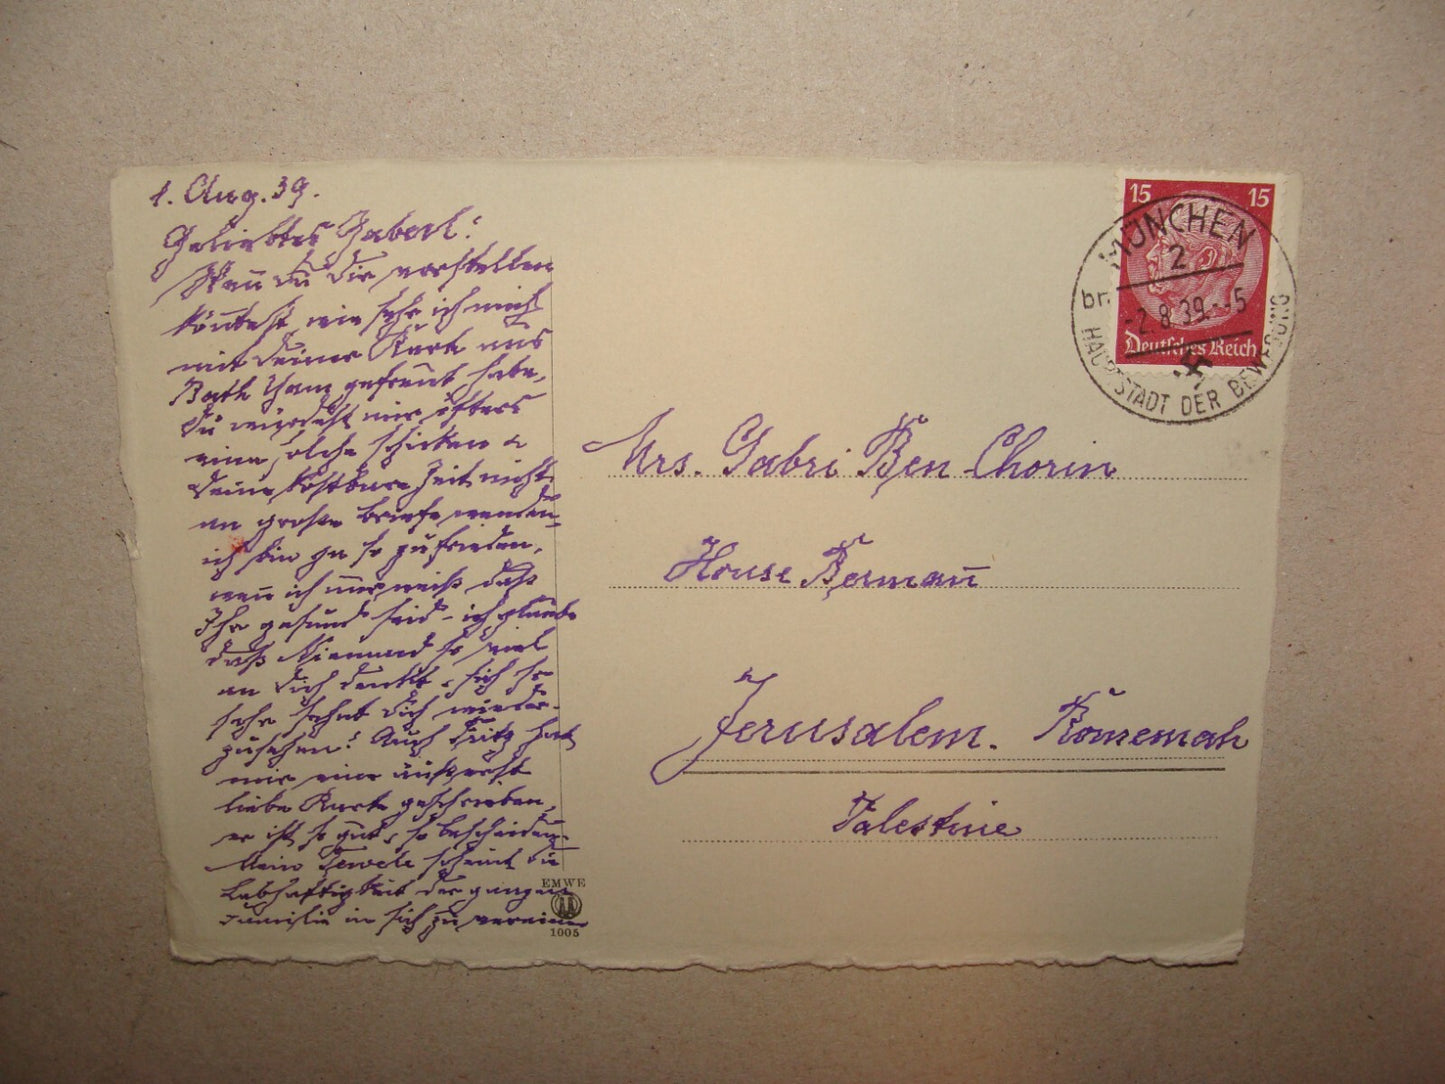 1. Aug. 39.
Geliebtes Gaberl!
Wenn du dir vorstellen
könntest, wie sehr ich mich
mit deiner Karte aus
Bath Yam gefreut habe,
du würdest mir öfters
eine solche schicken u
deine kostbare Zeit nicht
an große Briefe wenden,
ich bin ja so zufrieden,
wenn ich nur weiß daß
Ihr gesund seid - ich glaube
daß Niemand so viel
an dich denkt, sich so
sehr sehnt dich wieder-
zusehen! Auch Fritz hat
mir eine äußerst
liebe Karte geschrieben,
er ist so gut, so bescheiden.
Mein scheint die
Lebhaftigkeit der ganzen
Familie in sich zu vereinen
EMWE
1005
15 15
Deutsches Reich
MÜNCHEN
2
br.
-2.8.39.--5
HAUPTSTADT DER BEWEGUNG
Mrs. Gabri Ben-Chorin
House Bermann
Jerusalem. Romemah
Palestine